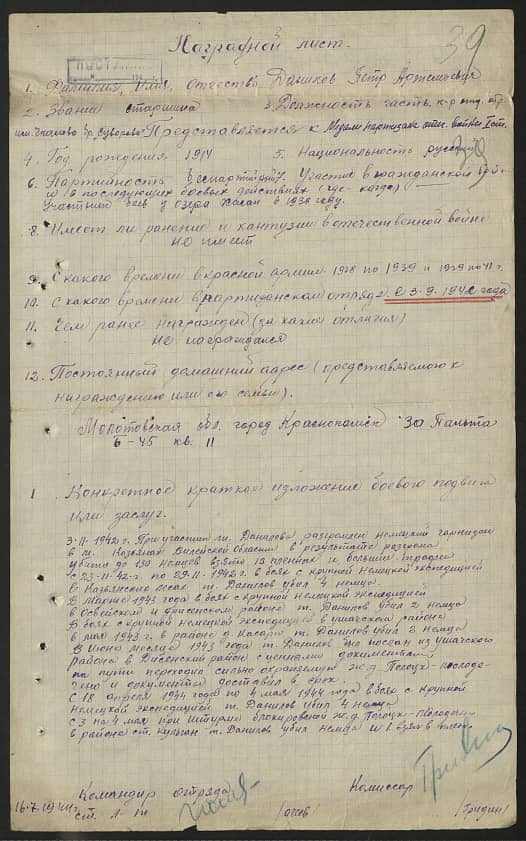 39
Наградной лист.
1. Фамилия, Имя, Отчество Данилов Петр Артемьевич
2. Звание старшина 3. Должность часть, к-р отд. отр.
им. Чкалова бр. Суворова Представляется к Медали партизана отеч. войны I ст.
4. Год рождения 1914 5. Национальность русский
6. Партийность беспартийный. Участие в гражданской войне
и в последующих боевых действиях (где когда)
Участник боев у озера Хасан в 1938 году.
8. Имеет ли ранение и кантузии в отечественной войне
не имеет
9. С какого времени в красной армии 1938 по 1939 и 1939 по 41 г.
10. С какого времени в партизанском отряде с 3.9.1942 года
11. Чем ранее награжден (за какия отличия)
не награждался
12. Постоянный домашний адрес (представляемого к
награждению или его семьи).
Молотовская обл. город Краснокамск
6-45 кв. 11
1 Конкретное краткое изложения боевого подвига
или заслуг.
3-11-1942 г. При участии т. Данилова разгромлен немецкий гарнизон
в м. Казьяны Вилейской области в результате разгрома
убиты до 130 немцев взято 13 пленных и большие трофеи
С 23-11-42 г. по 29-11-1942 г. в боях с крупной немецкой экспедицией
в Казьянских лесах т. Данилов убил 4 немца.
В Марте 1943 года в боях с крупной немецкой экспедицией
в Освейском и Дрисенском районе т. Данилов убил 2 немца
В боях с крупной немецкой экспедицией в ушачском районе
в мае 1943 г. в районе д. т. Данилов убил 3 немца
В Июне месяце 1943 года т. Данилов был послан из ушачского
района в Дисенский район с ценными документами
на пути перехода сильно охраняемую ж.д. Полоцк-молоде-
чено и документы доставил в срок.
С 18 апреля 1944 года по 4 мая 1944 года в боях с крупной
немецкой экспедицией т. Данилов убил 4 немца
С 3 на 4 мая при штурме блокированой ж.д. Полоцк-Молодечно
в районе ст. т. Данилов убил немца и 1 взял в плен
Командир отряда Комиссар
16.7.1944 г. ст. л-т /Гридин/